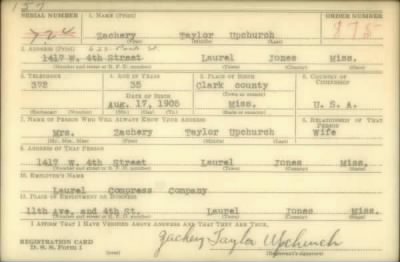 157
SERIAL NUMBER 1. NAME (Print) ORDER NUMBER
724 Zachery Taylor Upchurch 875
(First) (Middle) (Last)
2. ADDRESS (Print)
1417 W. 4th Street Laurel Jones Miss.
(Number and street or R. F. D. number) (Town) (County) (State)
3. TELEPHONE 4. AGE IN YEARS 5. PLACE OF BIRTH 6. COUNTRY OF CITIZENSHIP
372 35 Clark county
DATE OF BIRTH (Town or county)
Aug. 17, 1905 Miss. U. S. A.
(Exchange) (Number) (Mo.) (Day) (Yr.) (State or country)
7. NAME OF PERSON WHO WILL ALWAYS KNOW YOUR ADDRESS 8. RELATIONSHIP OF THAT PERSON
Mrs. Zachery Taylor Upchurch Wife
(Mr., Mrs., Miss) (First) (Middle) (Last)
9. ADDRESS OF THAT PERSON
1417 W. 4th Street Laurel Jones Miss.
(Number and street or R. F. D. number) (Town) (County) (State)
10. EMPLOYER'S NAME
Laurel Compress Company
11. PLACE OF EMPLOYMENT OR BUSINESS
11th Ave. and 4th St. Laurel Jones Miss.
(Number and street or R. F. D. number) (Town) (County) (State)
I AFFIRM THAT I HAVE VERIFIED ABOVE ANSWERS AND THAT THEY ARE TRUE.
REGISTRATION CARD
D. S. S. Form 1 (over) Zachery Taylor Upchurch
(Registrant's signature)